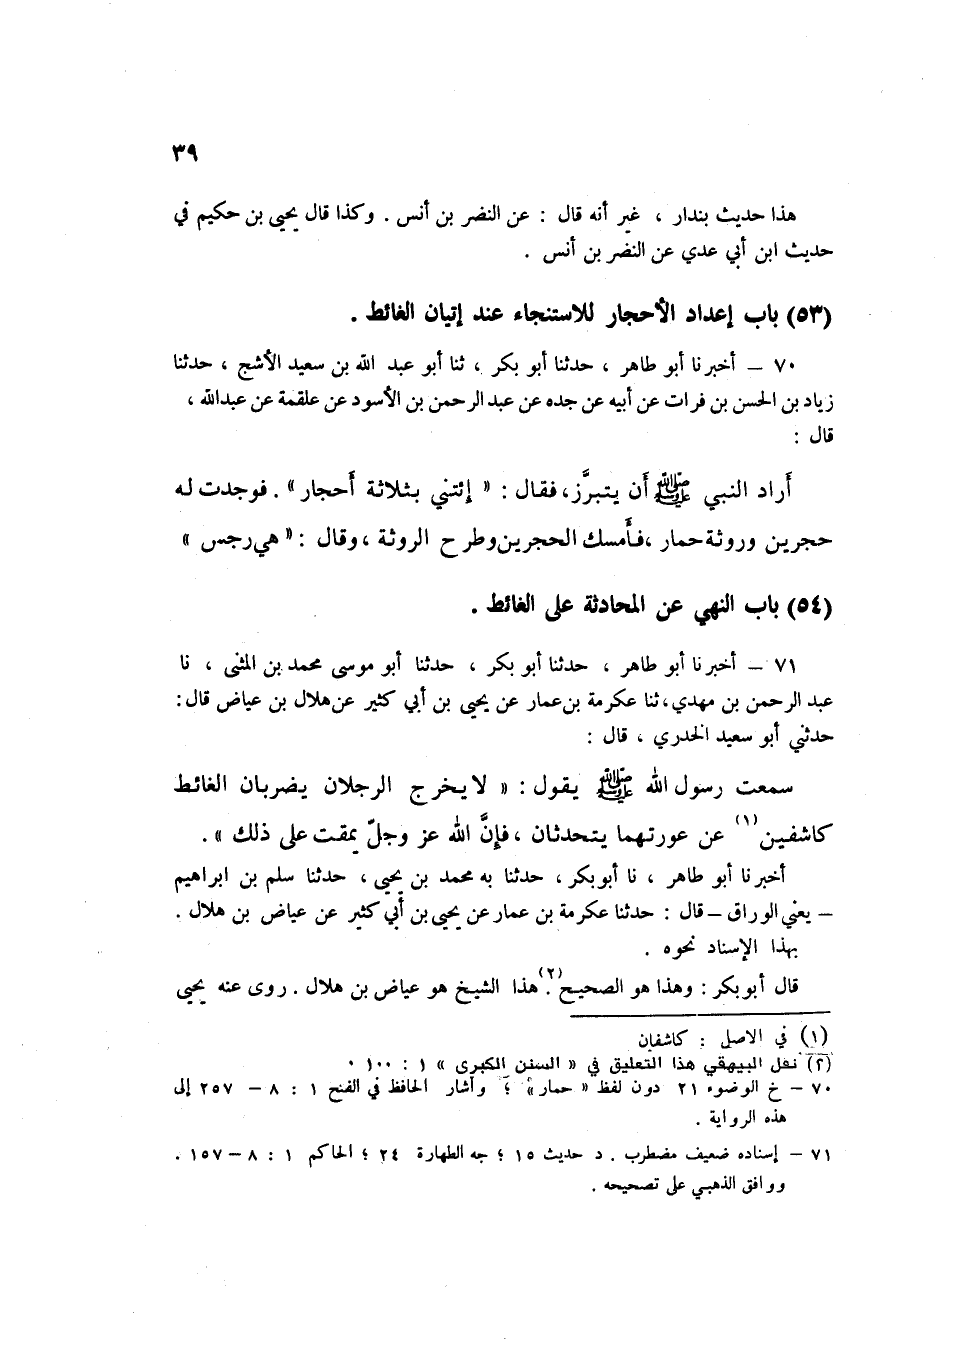 ٣٩
هذا حديث بندار ، غير أنه قال : عن النضر بن أنس . وكذا قال يحيى بن حكيم في
حديث ابن أبي عدي عن النضر بن أنس .
(٥٣) باب إعداد الأحجار للاستنجاء عند إتيان الغائط .
٧٠ – أخبرنا أبو طاهر ، حدثنا أبو بكر ، ثنا أبو عبد الله بن سعيد الأشج ، حدثنا
زياد بن الحسن بن فرات عن أبيه عن جده عن عبد الرحمن بن الأسود عن علقمة عن عبدالله ،
قال :
أراد النبي ﷺ أن يتبرَّز، فقال : « إئتني بثلاثة أحجار» . فوجدت له
حجرين وروثة حمار ، فأمسك الحجرين وطرح الروثة ، وقال : « هي رجس »
(٥٤) باب النهي عن المحادثة على الغائط .
٧١ – أخبرنا أبو طاهر ، حدثنا أبو بكر ، حدثنا أبو موسى محمد بن المثنى ، نا
عبد الرحمن بن مهدي، ثنا عكرمة بن عمار عن يحيى بن أبي كثير عن هلال بن عياض قال :
حدثني أبو سعيد الخدري ، قال :
سمعت رسول الله ﷺ يقول : « لا يخرج الرجلان يضربان الغائط
كاشفين(١) عن عورتهما يتحدثان ، فإنَّ الله عز وجلّ يمقت على ذلك » .
أخبرنا أبو طاهر ، نا أبو بكر ، حدثنا به محمد بن يحيى ، حدثنا سلم بن ابراهيم
– يعني الوراق – قال : حدثنا عكرمة بن عمار عن يحيى بن أبي كثير عن عياض بن هلال .
بهذا الإسناد نحوه .
قال أبو بكر : وهذا هو الصحيح(٢). هذا الشيخ هو عياض بن هلال . روى عنه يحيى
(١) في الاصل : كاشفان
(٢) نقل البيهقي هذا التعليق في « السنن الكبرى » ١ : ١٠٠ .
٧٠ – خ الوضوء ٢١ دون لفظ « حمار» ؛ وأشار الحافظ في الفتح ١ : ٨ – ٢٥٧ إلى
هذه الرواية .
٧١ – إسناده ضعيف مضطرب . د حديث ١٥ ؛ جه الطهارة ٢٤ ؛ الحاكم ١ : ٨ – ١٥٧ .
ووافق الذهبي على تصحيحه .